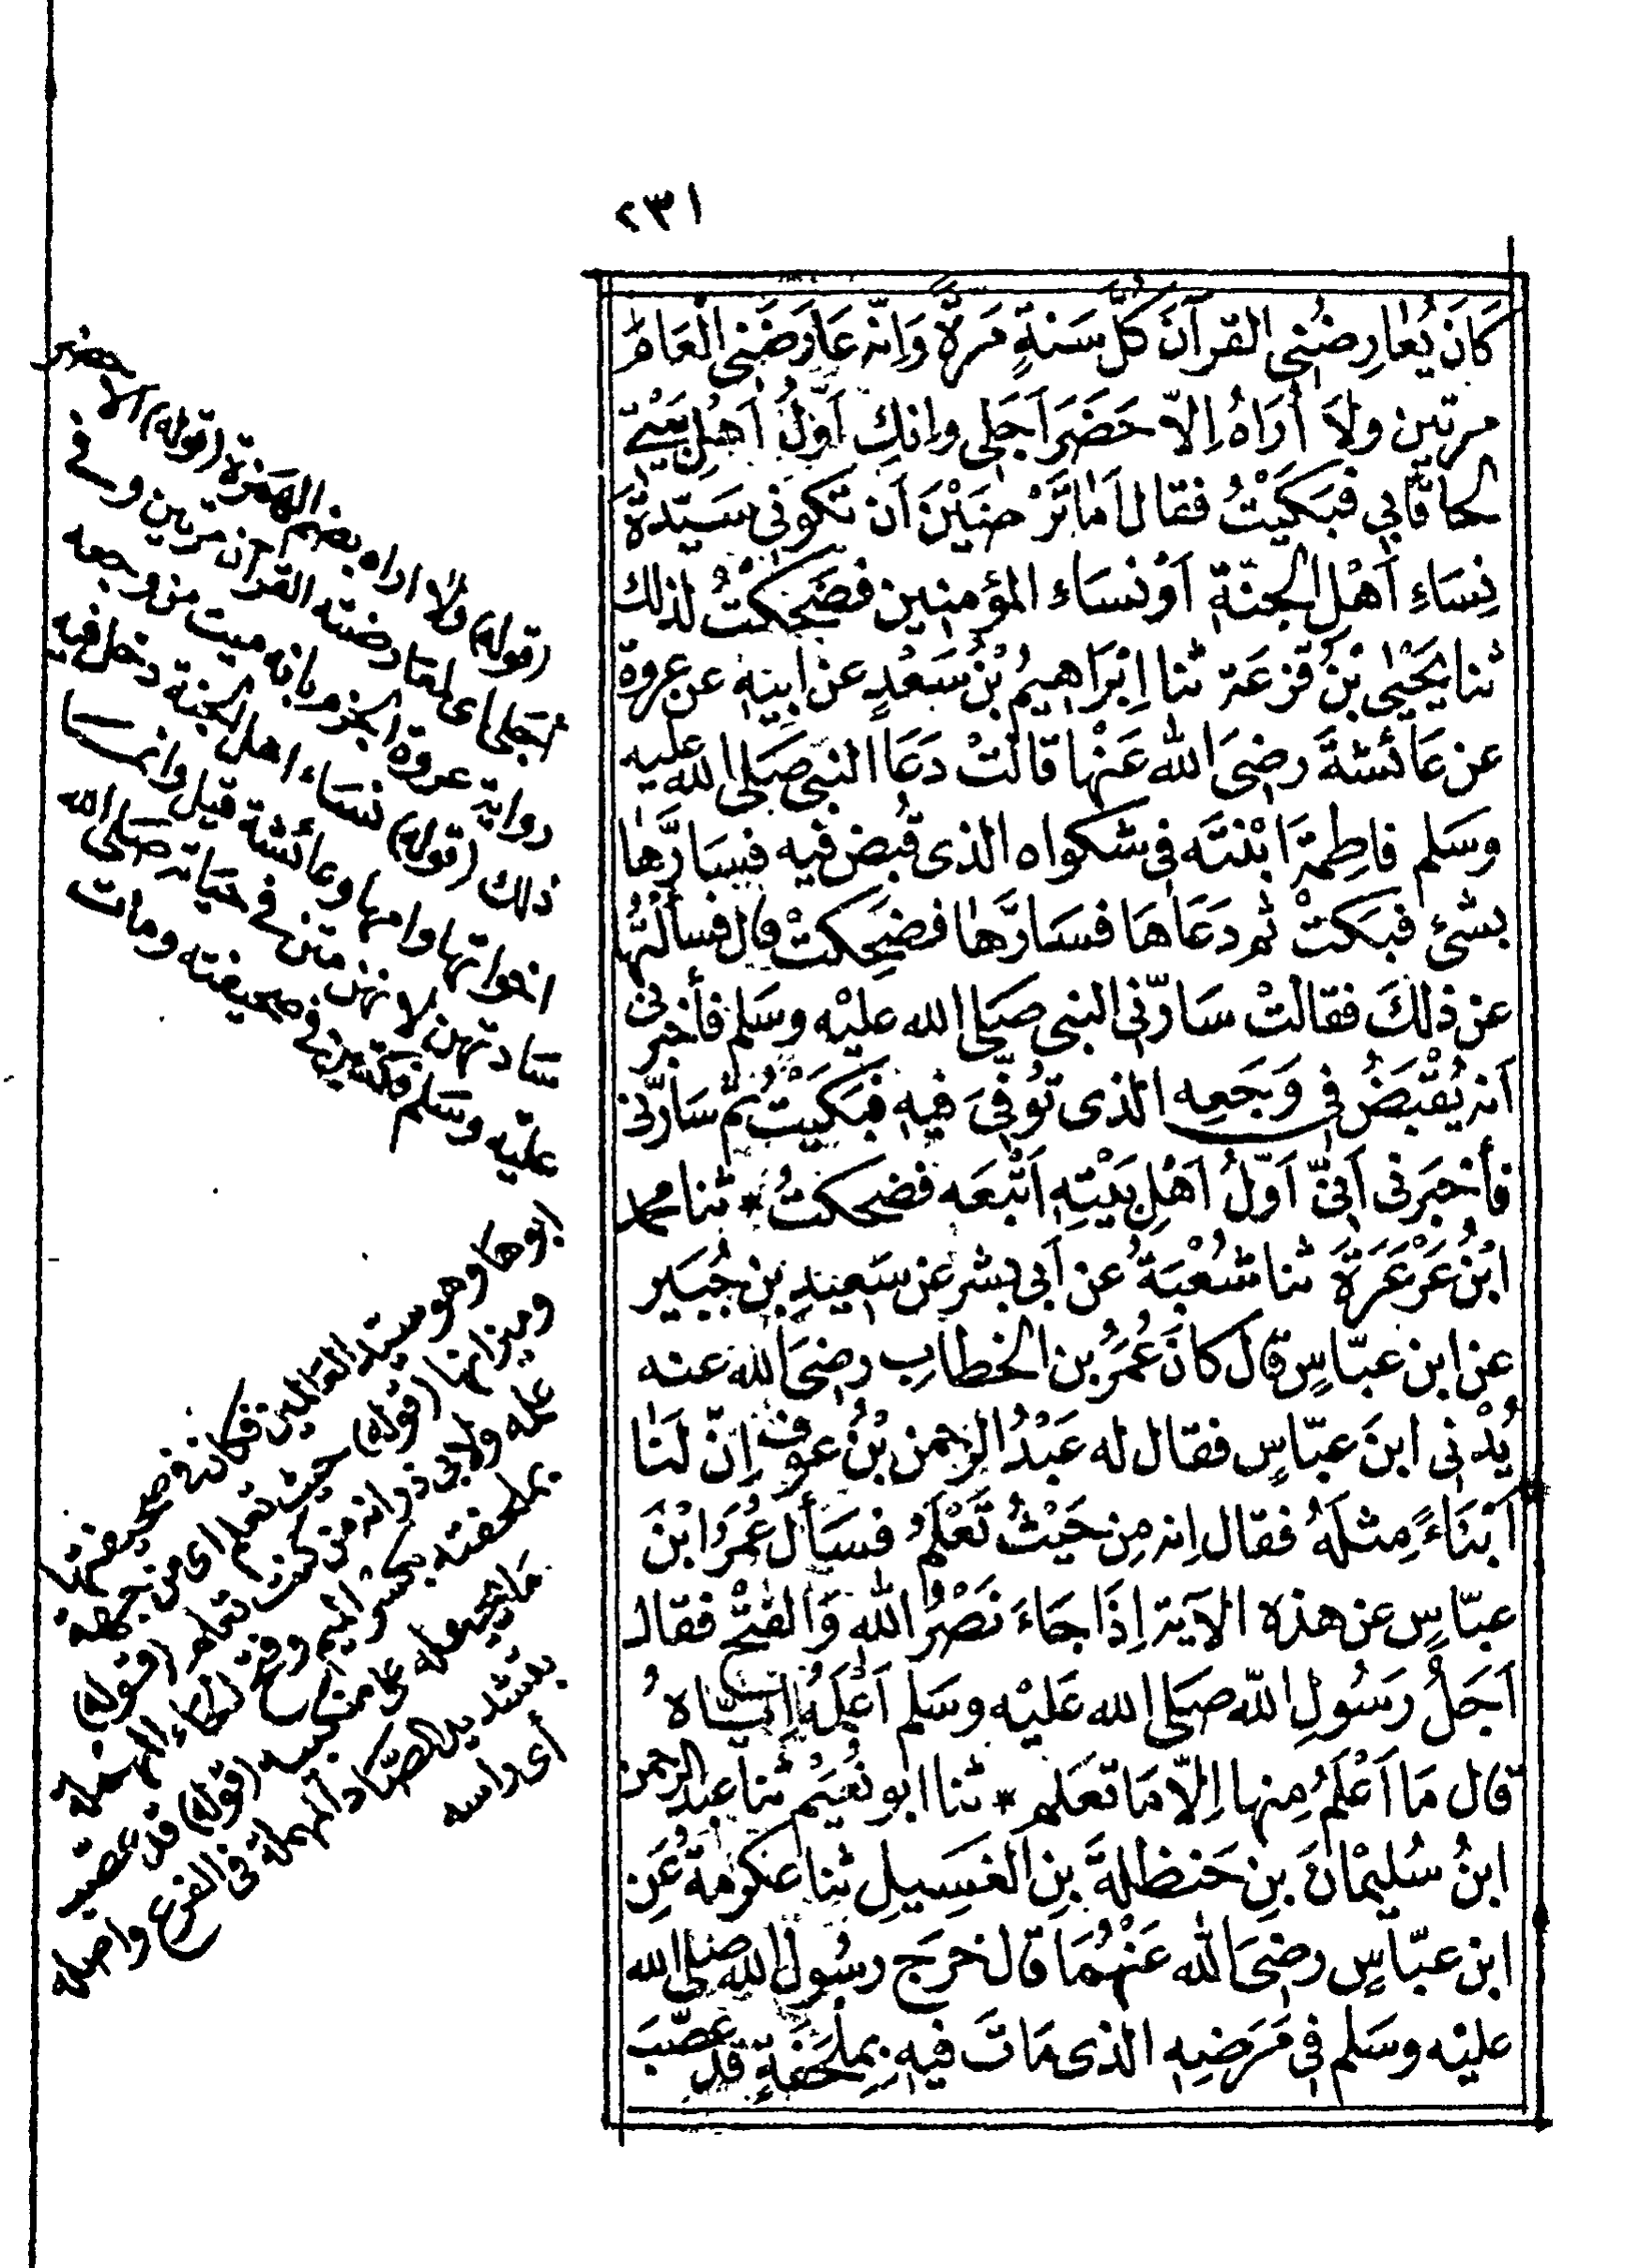 ٢٣١
كَانَ يُعَارِضُنِى القرآنَ كُلَّ سَنَةٍ مَرَّةً وَاِنّه عَارَضَنِى العَامَ
مرتين ولاَ أُرَاهُ اِلاّ حَضَرَ اَجَلِى وانِكِ اَوّلُ اَهْلِ بَيْتِى
لحاقًا بِي فَبَكَيْتُ فقال اَمَا تَرْضَيْنَ اَن تكونى سَيّدةَ
نِسَاءِ اَهْلِ الجنّة اَوْ نسَاءِ المؤمنِين فضَحِكْتُ لذلك
ثنا يَحْيٰى بْنُ قَزعَة ثنا اِبْرَاهِيمُ بْنُ سَعْدٍ عن ابِيهِ عن عروة
عن عَائشةَ رضِىَ الله عَنْها قالَتْ دَعَا النبى صَلى الله عليه
وسَلم فاطِمةَ ابْنتَه فى شكواه الذى قُبض فيه فسَارَّها
بشئ فبَكتْ ثم دَعَاهَا فسَارَّها فضَحِكتْ قال فسألتُها
عن ذلكَ فقالتْ سَارّنى النبى صَلى الله عليْه وسَلم فأخبرنى
اَنه يُقْبَضُ فى وَجَعِه الذى تُوفّىَ فيهِ فبَكَيْتُ ثمّ سَارّنى
فأخبَرنى اَنّى اَوّلُ اَهْلِ بَيْتِهِ اَتْبَعَه فضحكتُ * ثنا محمد
ابْنُ عَرْعَرَةَ ثنا شُعْبَةُ عن اَبى بشر عن سَعِيدِ بن جُبَير
عن ابن عبّاسٍ قال كانَ عُمَرُ بن الخطابِ رضِىَ الله عنه
يُدْنى ابنَ عبّاسٍ فقال له عَبْدُ الرحمن بْنُ عوف اِنّ لَنَا
اَبْنَاءً مِثلَهُ فقال اِنه مِن حَيْثُ تَعْلَمُ فسَأَل عُمَرُ ابْنَ
عبّاسٍ عن هذه الآية اِذَا جَاءَ نَصْرُ الله وَالفَتْحُ فقال
اَجَلُ رَسُولِ الله صَلى الله عَليْه وسَلم اَعْلَمَهُ اِيّاهُ
قال مَا اَعْلَمُ مِنها اِلاّ مَا تعَلم * ثنا ابو نُعَيْمٍ ثنا عبد الرحمن
ابنُ سُليْمانَ بنِ حَنظلةَ بنِ الغَسِيلِ ثنا عكرمةُ عَن
ابن عبّاسٍ رضِىَ الله عَنْهُمَا قال خرَج رسُول الله صَلى الله
عليْه وسَلم فى مَرَضِهِ الذى مَاتَ فيهِ بمِلْحَفةٍ قد عصّبَ
(قوله) ولا اراه بضم الهمزة (قوله) الا حضر
اجلى اى لمعارضته القرآن مرتين وفى
رواية عروة الجزم بانه ميت من وجعه
ذلك (قوله) نساء اهل الجنة دخل فيه
اخواتها وامها وعائشة قيل وانما
سادتهن لانهن متن فى حياته صلى الله
عليه وسلم فكن فى صحيفته ومات
ابوها وهو سيد العالمين فكان فى صحيفتها
وميزانها (قوله) حيث تعلم اى من جهة
علمه ولابى ذر انه من كنت تعلم (قوله)
بملحفته بكسر الميم وفتح الحاء المهملة
على منكبيه (قوله) قد عصب
بتشديد الصاد المهملة فى الفرع واصله
أى راسه